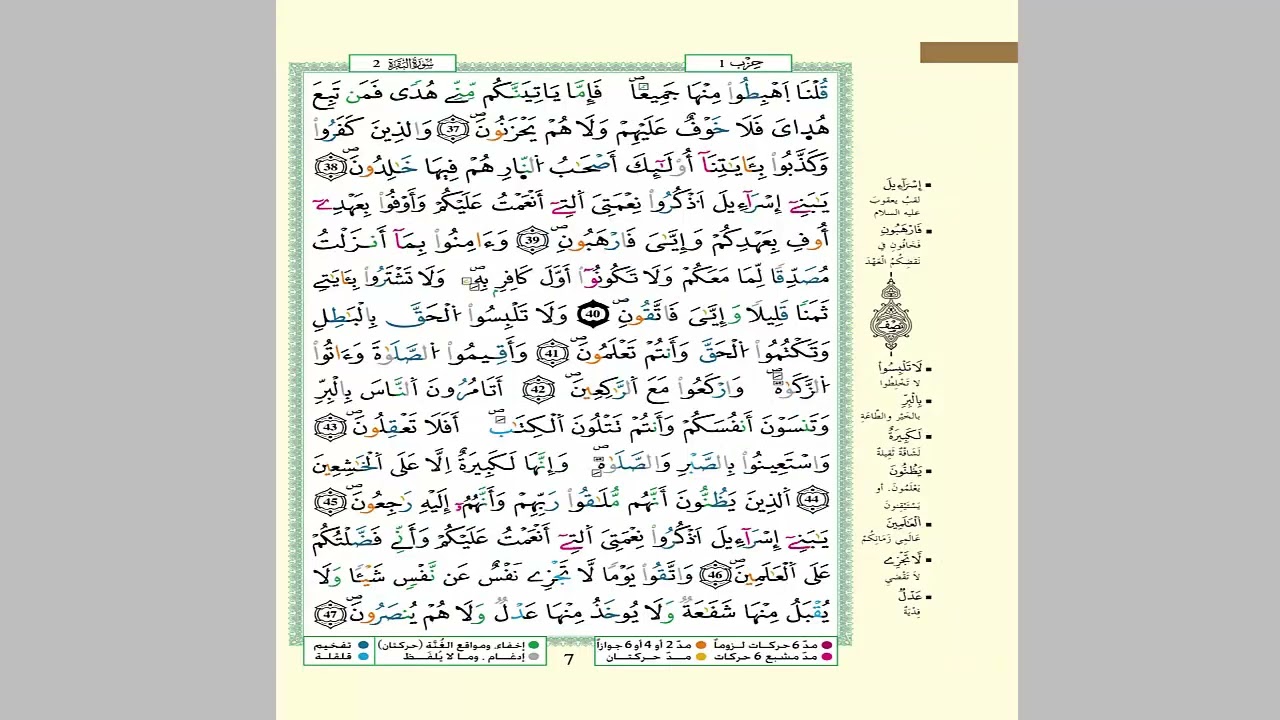 سُورَةُ البَقَرَةِ 2
حِزْب 1
قُلْنَا اَهْبِطُواْ مِنْهَا جَمِيعٗاۖ فَإِمَّا يَاتِيَنَّكُم مِّنِّے هُدٗى فَمَن تَبِعَ
هُدَايَ فَلَا خَوْفٌ عَلَيْهِمْ وَلَا هُمْ يَحْزَنُونَۖ 37 وَالذِينَ كَفَرُواْ
وَكَذَّبُواْ بِـَٔايَٰتِنَآ أُوْلَٰٓئِكَ أَصْحَٰبُ اُ۬لنّ۪ارِ هُمْ فِيهَا خَٰلِدُونَۖ 38
يَٰبَنِےٓ إِسْرَآءِيلَ اَذْكُرُواْ نِعْمَتِيَ اَ۬لتِےٓ أَنْعَمْتُ عَلَيْكُمْ وَأَوْفُواْ بِعَهْدِےٓ
أُوفِ بِعَهْدِكُمْ وَإِيَّٰيَ فَارْهَبُونِۖ 39 وَءَامِنُواْ بِمَآ أَنزَلْتُ
مُصَدِّقٗا لِّمَا مَعَكُمْ وَلَا تَكُونُوٓاْ أَوَّلَ كَافِرِۢ بِهِۦۖ وَلَا تَشْتَرُواْ بِـَٔايَٰتِے
ثَمَنٗا قَلِيلٗا وَإِيَّٰيَ فَاتَّقُونِۖ 40 وَلَا تَلْبِسُواْ اُ۬لْحَقَّ بِالْبَٰطِلِ
وَتَكْتُمُواْ اُ۬لْحَقَّ وَأَنتُمْ تَعْلَمُونَۖ 41 وَأَقِيمُواْ اُ۬لصَّلَوٰةَ وَءَاتُواْ
اُ۬لزَّكَوٰةَۖ وَارْكَعُواْ مَعَ اَ۬لرَّٰكِعِينَۖ 42 أَتَامُرُونَ اَ۬لنَّاسَ بِالْبِرِّ
وَتَنسَوْنَ أَنفُسَكُمْ وَأَنتُمْ تَتْلُونَ اَ۬لْكِتَٰبَۖ أَفَلَا تَعْقِلُونَۖ 43
وَاسْتَعِينُواْ بِالصَّبْرِ وَالصَّلَوٰةِۖ وَإِنَّهَا لَكَبِيرَةٌ اِلَّا عَلَى اَ۬لْخَٰشِعِينَ
44 اَ۬لذِينَ يَظُنُّونَ أَنَّهُم مُّلَٰقُواْ رَبِّهِمْ وَأَنَّهُمُۥٓ إِلَيْهِ رَٰجِعُونَۖ 45
يَٰبَنِےٓ إِسْرَآءِيلَ اَذْكُرُواْ نِعْمَتِيَ اَ۬لتِےٓ أَنْعَمْتُ عَلَيْكُمْ وَأَنِّے فَضَّلْتُكُمْ
عَلَى اَ۬لْعَٰلَمِينَۖ 46 وَاتَّقُواْ يَوْمٗا لَّا تَجْزِے نَفْسٌ عَن نَّفْسٖ شَيْـٔٗا وَلَا
يُقْبَلُ مِنْهَا شَفَٰعَةٞ وَلَا يُوخَذُ مِنْهَا عَدْلٞ وَلَا هُمْ يُنصَرُونَۖ 47
إِسْرَآءِيلَ
لقبُ يعقوبَ
عليه السلام
فَارْهَبُونِ
فَخَافُونِ فِي
نَقضِكُمُ الْعَهْدَ
نصف
لَا تَلْبِسُواْ
لا تَخْلِطُوا
بِالْبِرِّ
بالخَيْرِ والطّاعَةِ
لَكَبِيرَةٌ
لَشَاقَّةٌ ثَقِيلَةٌ
يَظُنُّونَ
يَعْلَمُونَ، أو
يَسْتَيْقِنُونَ
الْعَٰلَمِينَ
عَالَمِي زَمَانِكُمْ
لَا تَجْزِے
لاَ تَقْضِي
عَدْلٌ
فِدْيَةٌ
مدّ 6 حركات لزوماً
مدّ 2 أو 4 أو 6 جوازاً
مدّ مشبع 6 حركات
مدّ حركتان
إخفاء، ومواقع الغُنَّة (حركتان)
تفخيم
إدغام، وما لا يُلفَظ
قلقلة
7